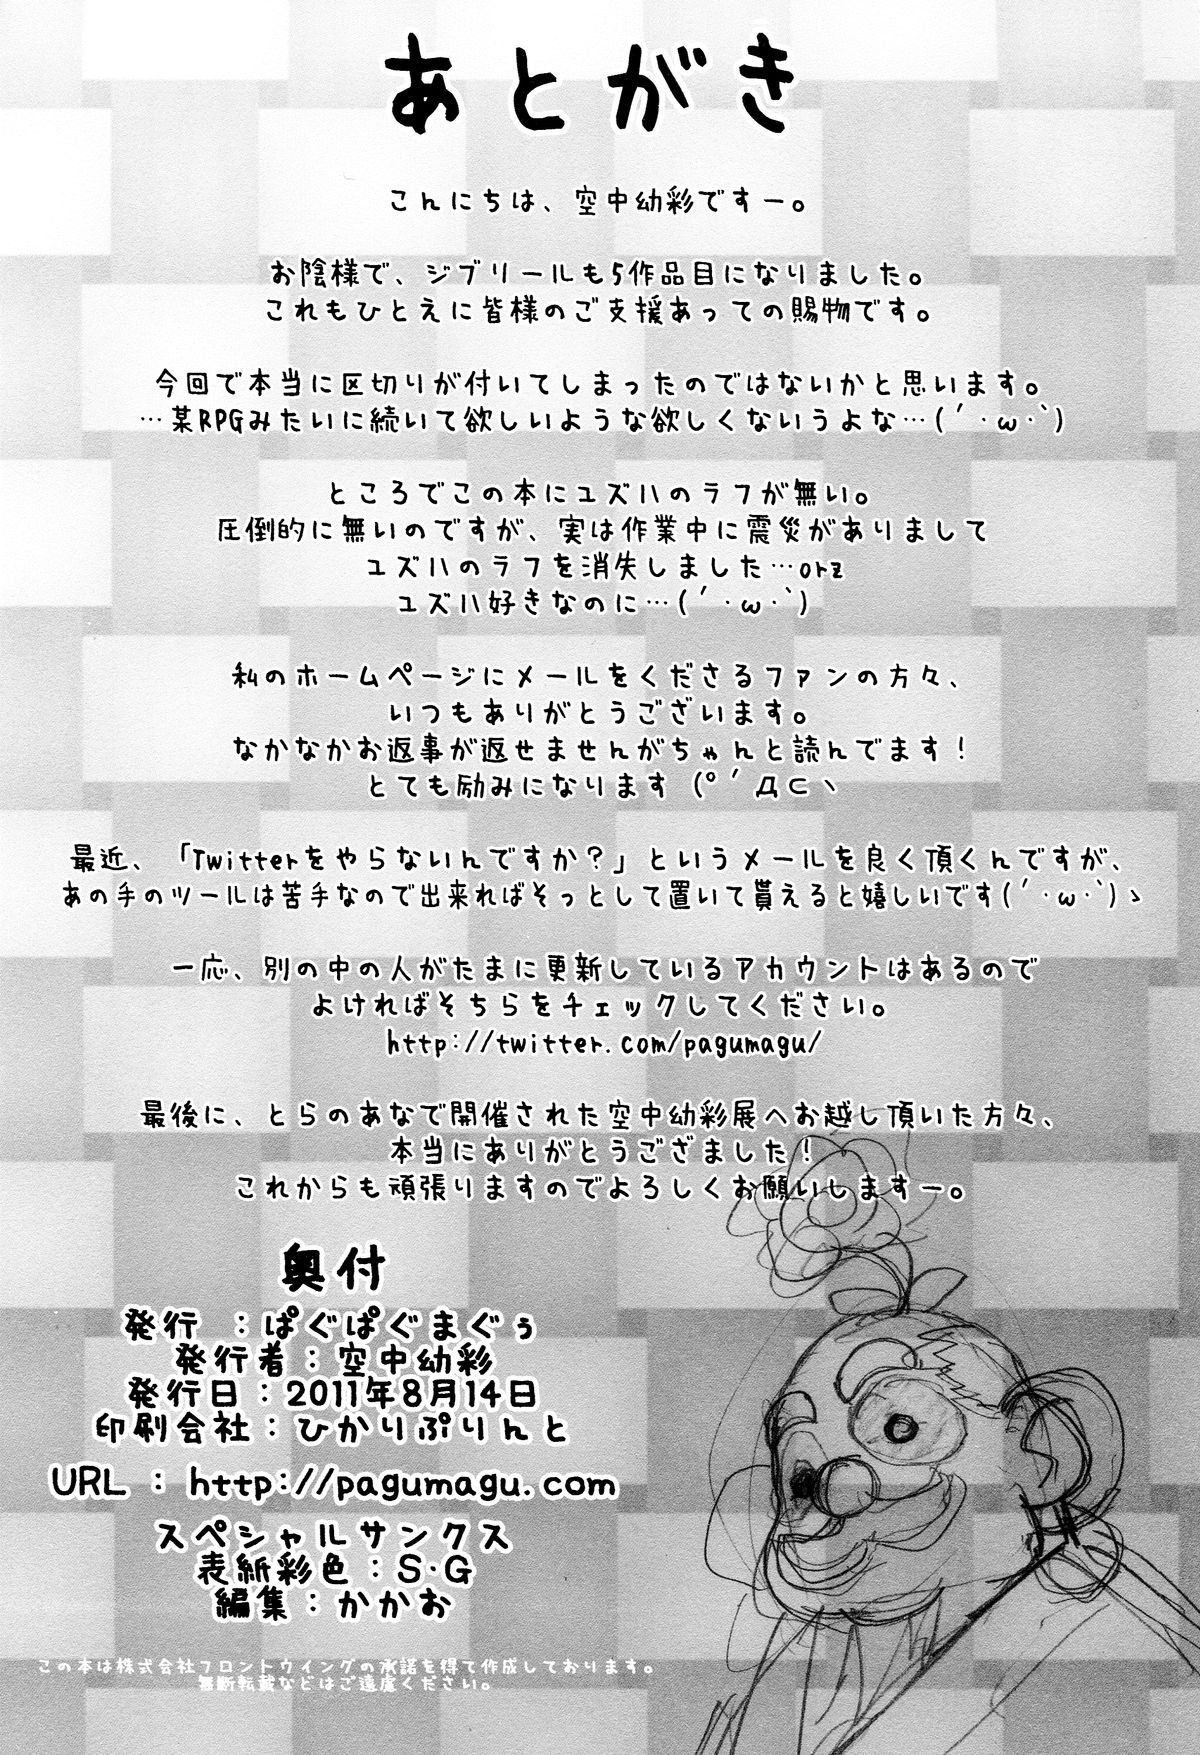 あとがき
こんにちは、空中幼彩ですー。
お陰様で、ジブリールも5作品目になりました。
これもひとえに皆様のご支援あっての賜物です。
今回で本当に区切りが付いてしまったのではないかと思います。
…某RPGみたいに続いて欲しいような欲しくないうよな…(´・ω・`)
ところでこの本にユズハのラフが無い。
圧倒的に無いのですが、実は作業中に震災がありまして
ユズハのラフを消失しました…orz
ユズハ好きなのに…(´・ω・`)
私のホームページにメールをくださるファンの方々、
いつもありがとうございます。
なかなかお返事が返せませんがちゃんと読んでます！
とても励みになります (ﾟ´Д⊂ヽ
最近、「Twitterをやらないんですか？」というメールを良く頂くんですが、
あの手のツールは苦手なので出来ればそっとして置いて貰えると嬉しいです(´・ω・`)ゝ
一応、別の中の人がたまに更新しているアカウントはあるので
よければそちらをチェックしてください。
http://twitter.com/pagumagu/
最後に、とらのあなで開催された空中幼彩展へお越し頂いた方々、
本当にありがとうござました！
これからも頑張りますのでよろしくお願いしますー。
奥付
発行　：ぱぐぱぐまぐぅ
発行者：空中幼彩
発行日：2011年8月14日
印刷会社：ひかりぷりんと
URL : http://pagumagu.com
スペシャルサンクス
表紙彩色：S・G
編集：かかお
この本は株式会社フロントウイングの承諾を得て作成しております。
無断転載などはご遠慮ください。